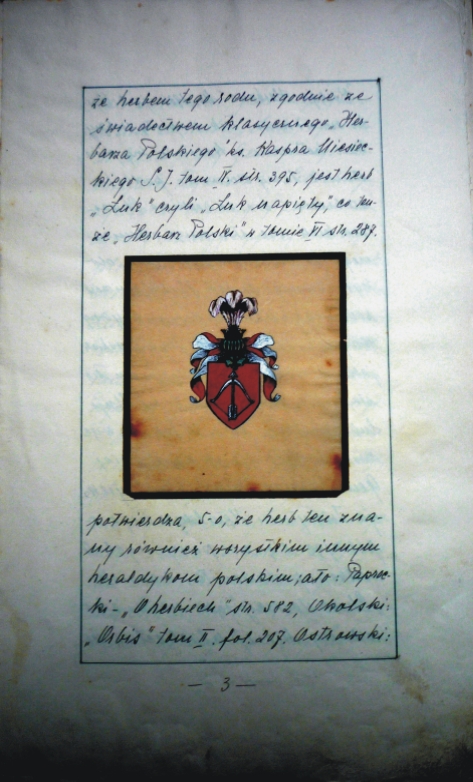 że herbem tego rodu, zgodnie ze
świadectwem klasycznego „Her-
barza Polskiego" ks. Kaspra Niesiec-
kiego S. J. tom IV. str. 395, jest herb
„Łuk" czyli „Łuk napięty", co tu-
że „Herbarz Polski" w tomie VI str. 287.
potwierdza, 5-o, że herb ten zna-
ny również wszystkim innym
heraldykom polskim, a to: Paproc-
ki - „O herbiech" str. 582, Okolski:
„Orbis" tom II. fol. 207. Ostrowski:
— 3 —